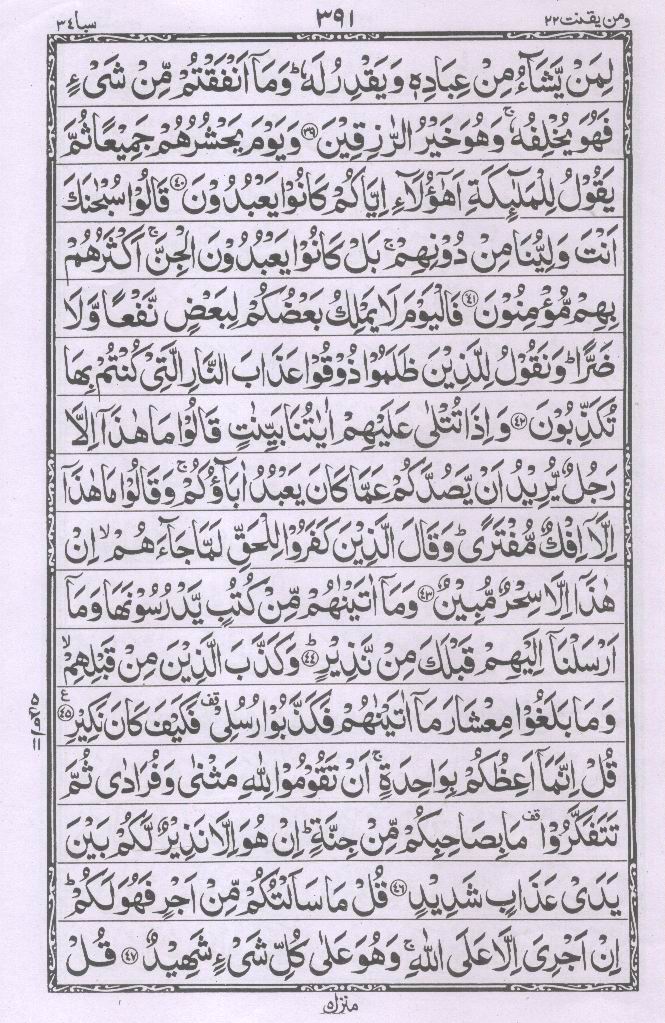 ومن یقنت ۲۲
۳۹۱
سبا ۳٤
لِمَنۡ يَّشَآءُ مِنۡ عِبَادِهٖ وَيَقۡدِرُ لَهٗ ؕ وَمَاۤ اَنۡفَقۡتُمۡ مِّنۡ شَىۡءٍ
فَهُوَ يُخۡلِفُهٗ ۚ وَهُوَ خَيۡرُ الرّٰزِقِيۡنَ ﴿۳۹﴾ وَيَوۡمَ يَحۡشُرُهُمۡ جَمِيۡعًا ثُمَّ
يَقُوۡلُ لِلۡمَلٰٓئِكَةِ اَهٰٓؤُلَاۤءِ اِيَّاكُمۡ كَانُوۡا يَعۡبُدُوۡنَ ﴿۴۰﴾ قَالُوۡا سُبۡحٰنَكَ
اَنۡتَ وَلِيُّنَا مِنۡ دُوۡنِهِمۡ ۚ بَلۡ كَانُوۡا يَعۡبُدُوۡنَ الۡجِنَّ ۚ اَكۡثَرُهُمۡ
بِهِمۡ مُّؤۡمِنُوۡنَ ﴿۴۱﴾ فَالۡيَوۡمَ لَا يَمۡلِكُ بَعۡضُكُمۡ لِبَعۡضٍ نَّفۡعًا وَّلَا
ضَرًّا ؕ وَنَقُوۡلُ لِلَّذِيۡنَ ظَلَمُوۡا ذُوۡقُوۡا عَذَابَ النَّارِ الَّتِىۡ كُنۡتُمۡ بِهَا
تُكَذِّبُوۡنَ ﴿۴۲﴾ وَاِذَا تُتۡلٰى عَلَيۡهِمۡ اٰيٰتُنَا بَيِّنٰتٍ قَالُوۡا مَا هٰذَاۤ اِلَّا
رَجُلٌ يُّرِيۡدُ اَنۡ يَّصُدَّكُمۡ عَمَّا كَانَ يَعۡبُدُ اٰبَآؤُكُمۡ ۚ وَقَالُوۡا مَا هٰذَاۤ
اِلَّاۤ اِفۡكٌ مُّفۡتَرًى ؕ وَقَالَ الَّذِيۡنَ كَفَرُوۡا لِلۡحَقِّ لَمَّا جَآءَهُمۡ ۙ اِنۡ
هٰذَاۤ اِلَّا سِحۡرٌ مُّبِيۡنٌ ﴿۴۳﴾ وَمَاۤ اٰتَيۡنٰهُمۡ مِّنۡ كُتُبٍ يَّدۡرُسُوۡنَهَا وَمَاۤ
اَرۡسَلۡنَاۤ اِلَيۡهِمۡ قَبۡلَكَ مِنۡ نَّذِيۡرٍ ؕ ﴿۴۴﴾ وَكَذَّبَ الَّذِيۡنَ مِنۡ قَبۡلِهِمۡ ۙ
وَمَا بَلَغُوۡا مِعۡشَارَ مَاۤ اٰتَيۡنٰهُمۡ فَكَذَّبُوۡا رُسُلِىۡ ۟ قف فَكَيۡفَ كَانَ نَكِيۡرِ ﴿۴۵﴾ ع
قُلۡ اِنَّمَاۤ اَعِظُكُمۡ بِوَاحِدَةٍ ۚ اَنۡ تَقُوۡمُوۡا لِلّٰهِ مَثۡنٰى وَفُرَادٰى ثُمَّ
تَتَفَكَّرُوۡا ۟ قف مَا بِصَاحِبِكُمۡ مِّنۡ جِنَّةٍ ؕ اِنۡ هُوَ اِلَّا نَذِيۡرٌ لَّكُمۡ بَيۡنَ
يَدَىۡ عَذَابٍ شَدِيۡدٍ ﴿۴۶﴾ قُلۡ مَا سَاَلۡتُكُمۡ مِّنۡ اَجۡرٍ فَهُوَ لَكُمۡ ؕ
اِنۡ اَجۡرِىَ اِلَّا عَلَى اللّٰهِ ۚ وَهُوَ عَلٰى كُلِّ شَىۡءٍ شَهِيۡدٌ ﴿۴۷﴾ قُلۡ
منزل ۵